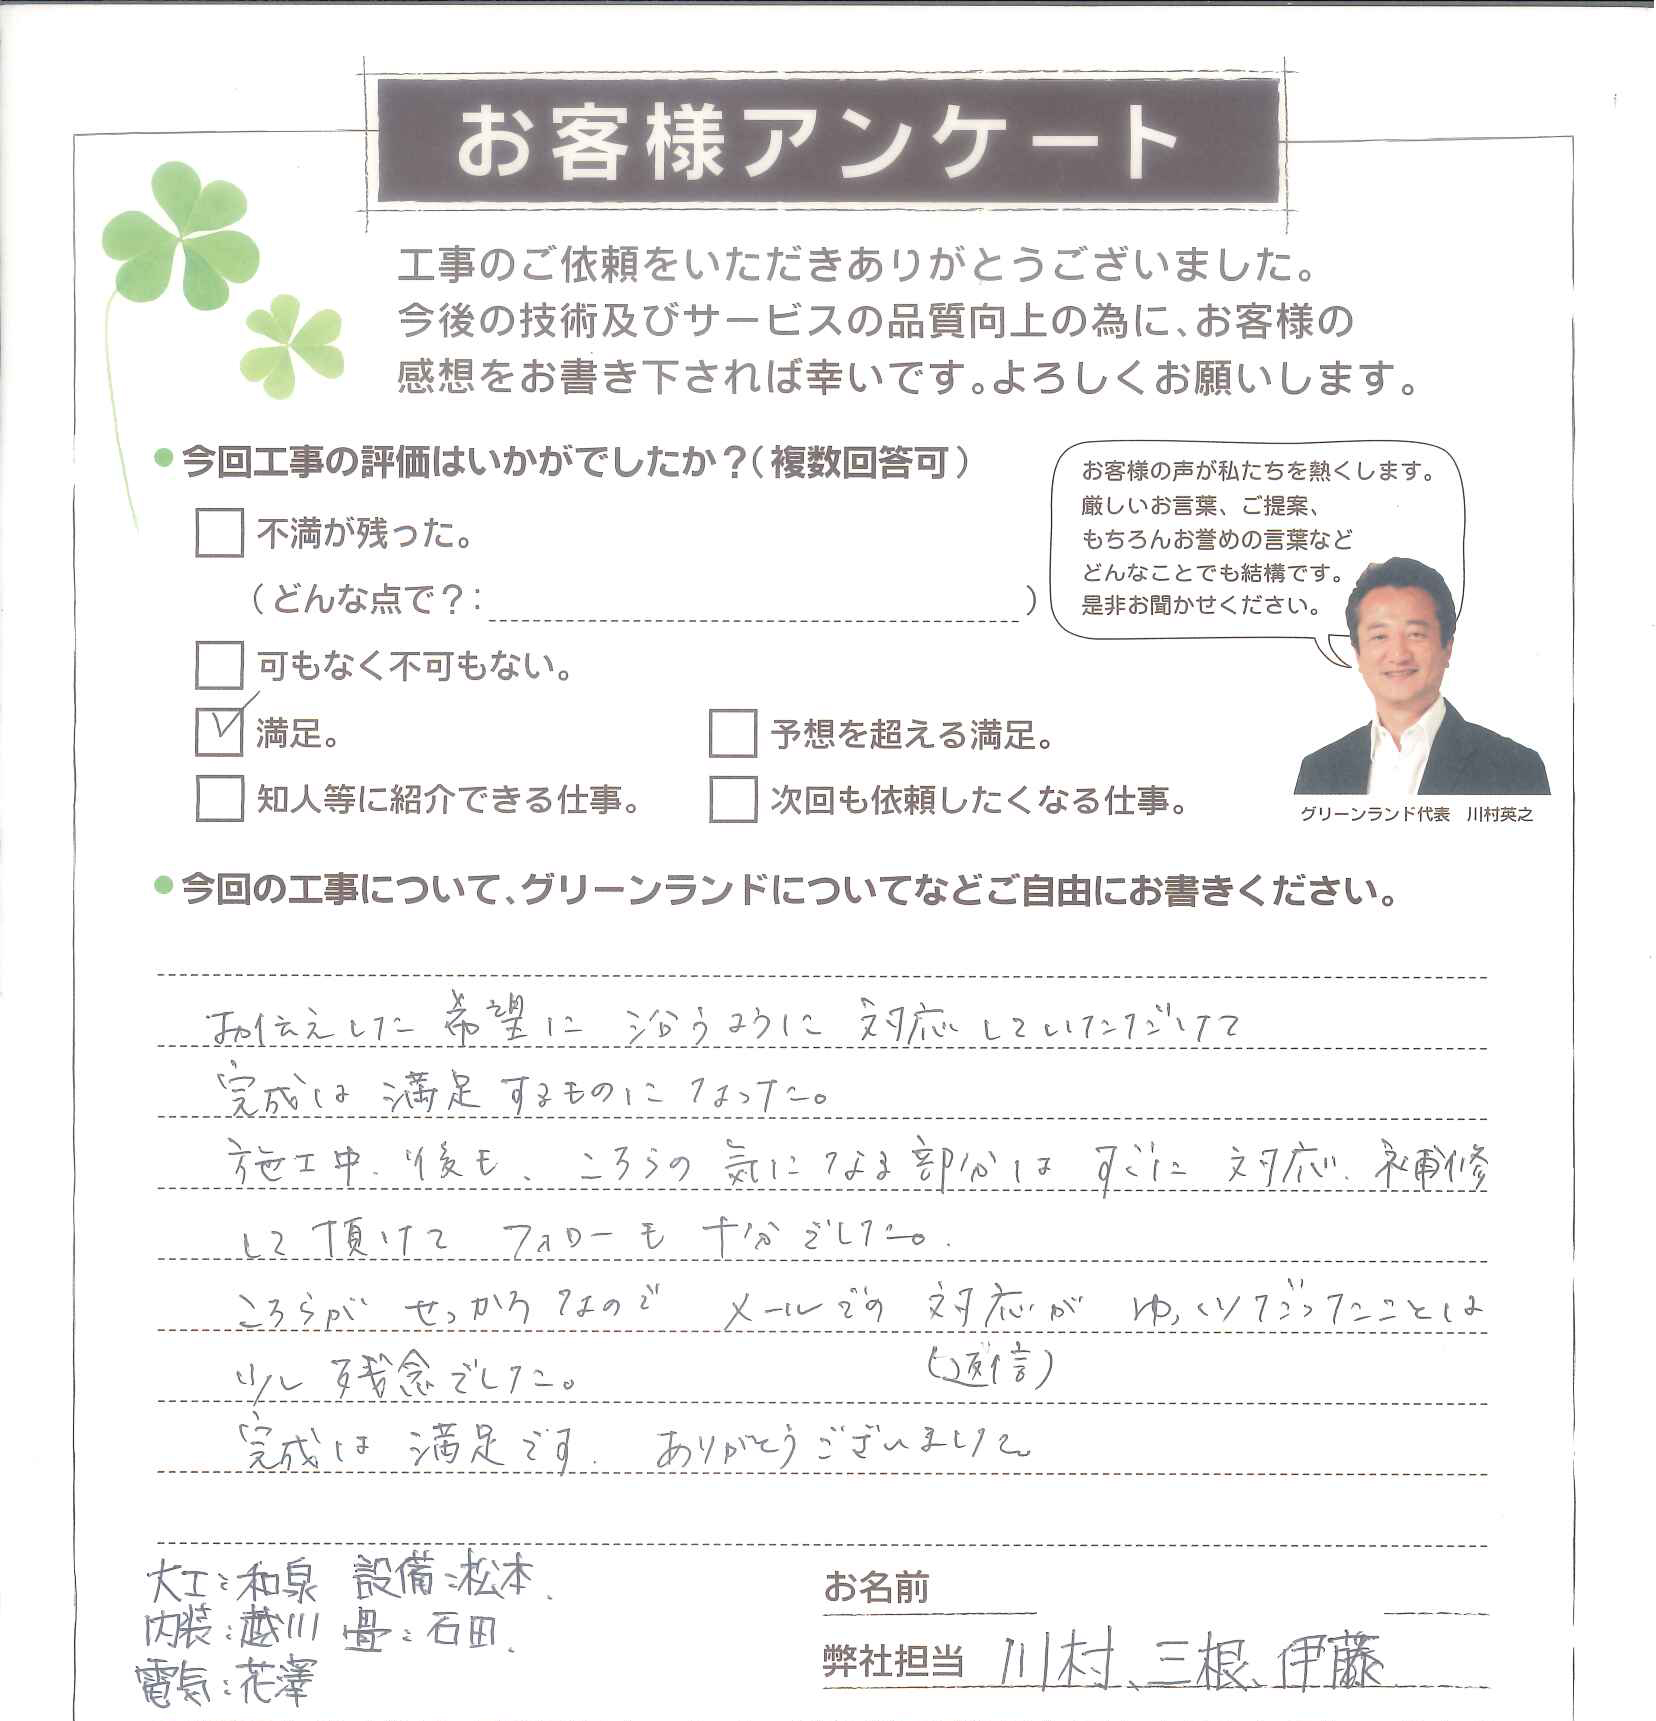 お客様アンケート
工事のご依頼をいただきありがとうございました。
今後の技術及びサービスの品質向上の為に、お客様の
感想をお書き下されば幸いです。よろしくお願いします。
●今回工事の評価はいかがでしたか?(複数回答可)
不満が残った。
(どんな点で?: )
可もなく不可もない。
満足。
予想を超える満足。
知人等に紹介できる仕事。
次回も依頼したくなる仕事。
お客様の声が私たちを熱くします。
厳しいお言葉、ご提案、
もちろんお誉めの言葉など
どんなことでも結構です。
是非お聞かせください。
グリーンランド代表 川村英之
●今回の工事について、グリーンランドについてなどご自由にお書きください。
お伝えした希望に 沿うように 対応していただけて
完成は 満足するものになった。
施工中、後も、こちらの気になる部分は すぐに 対応、補修
して頂けて フォローも 十分でした。
こちらが せっかちなので メールでの 対応が ゆっくりだったことは
(返信)
少し 残念でした。
完成は 満足です. ありがとうございました
大工:和泉 設備:松本.
内装:越川 畳:石田.
電気:花澤
お名前
弊社担当 川村、三根、伊藤